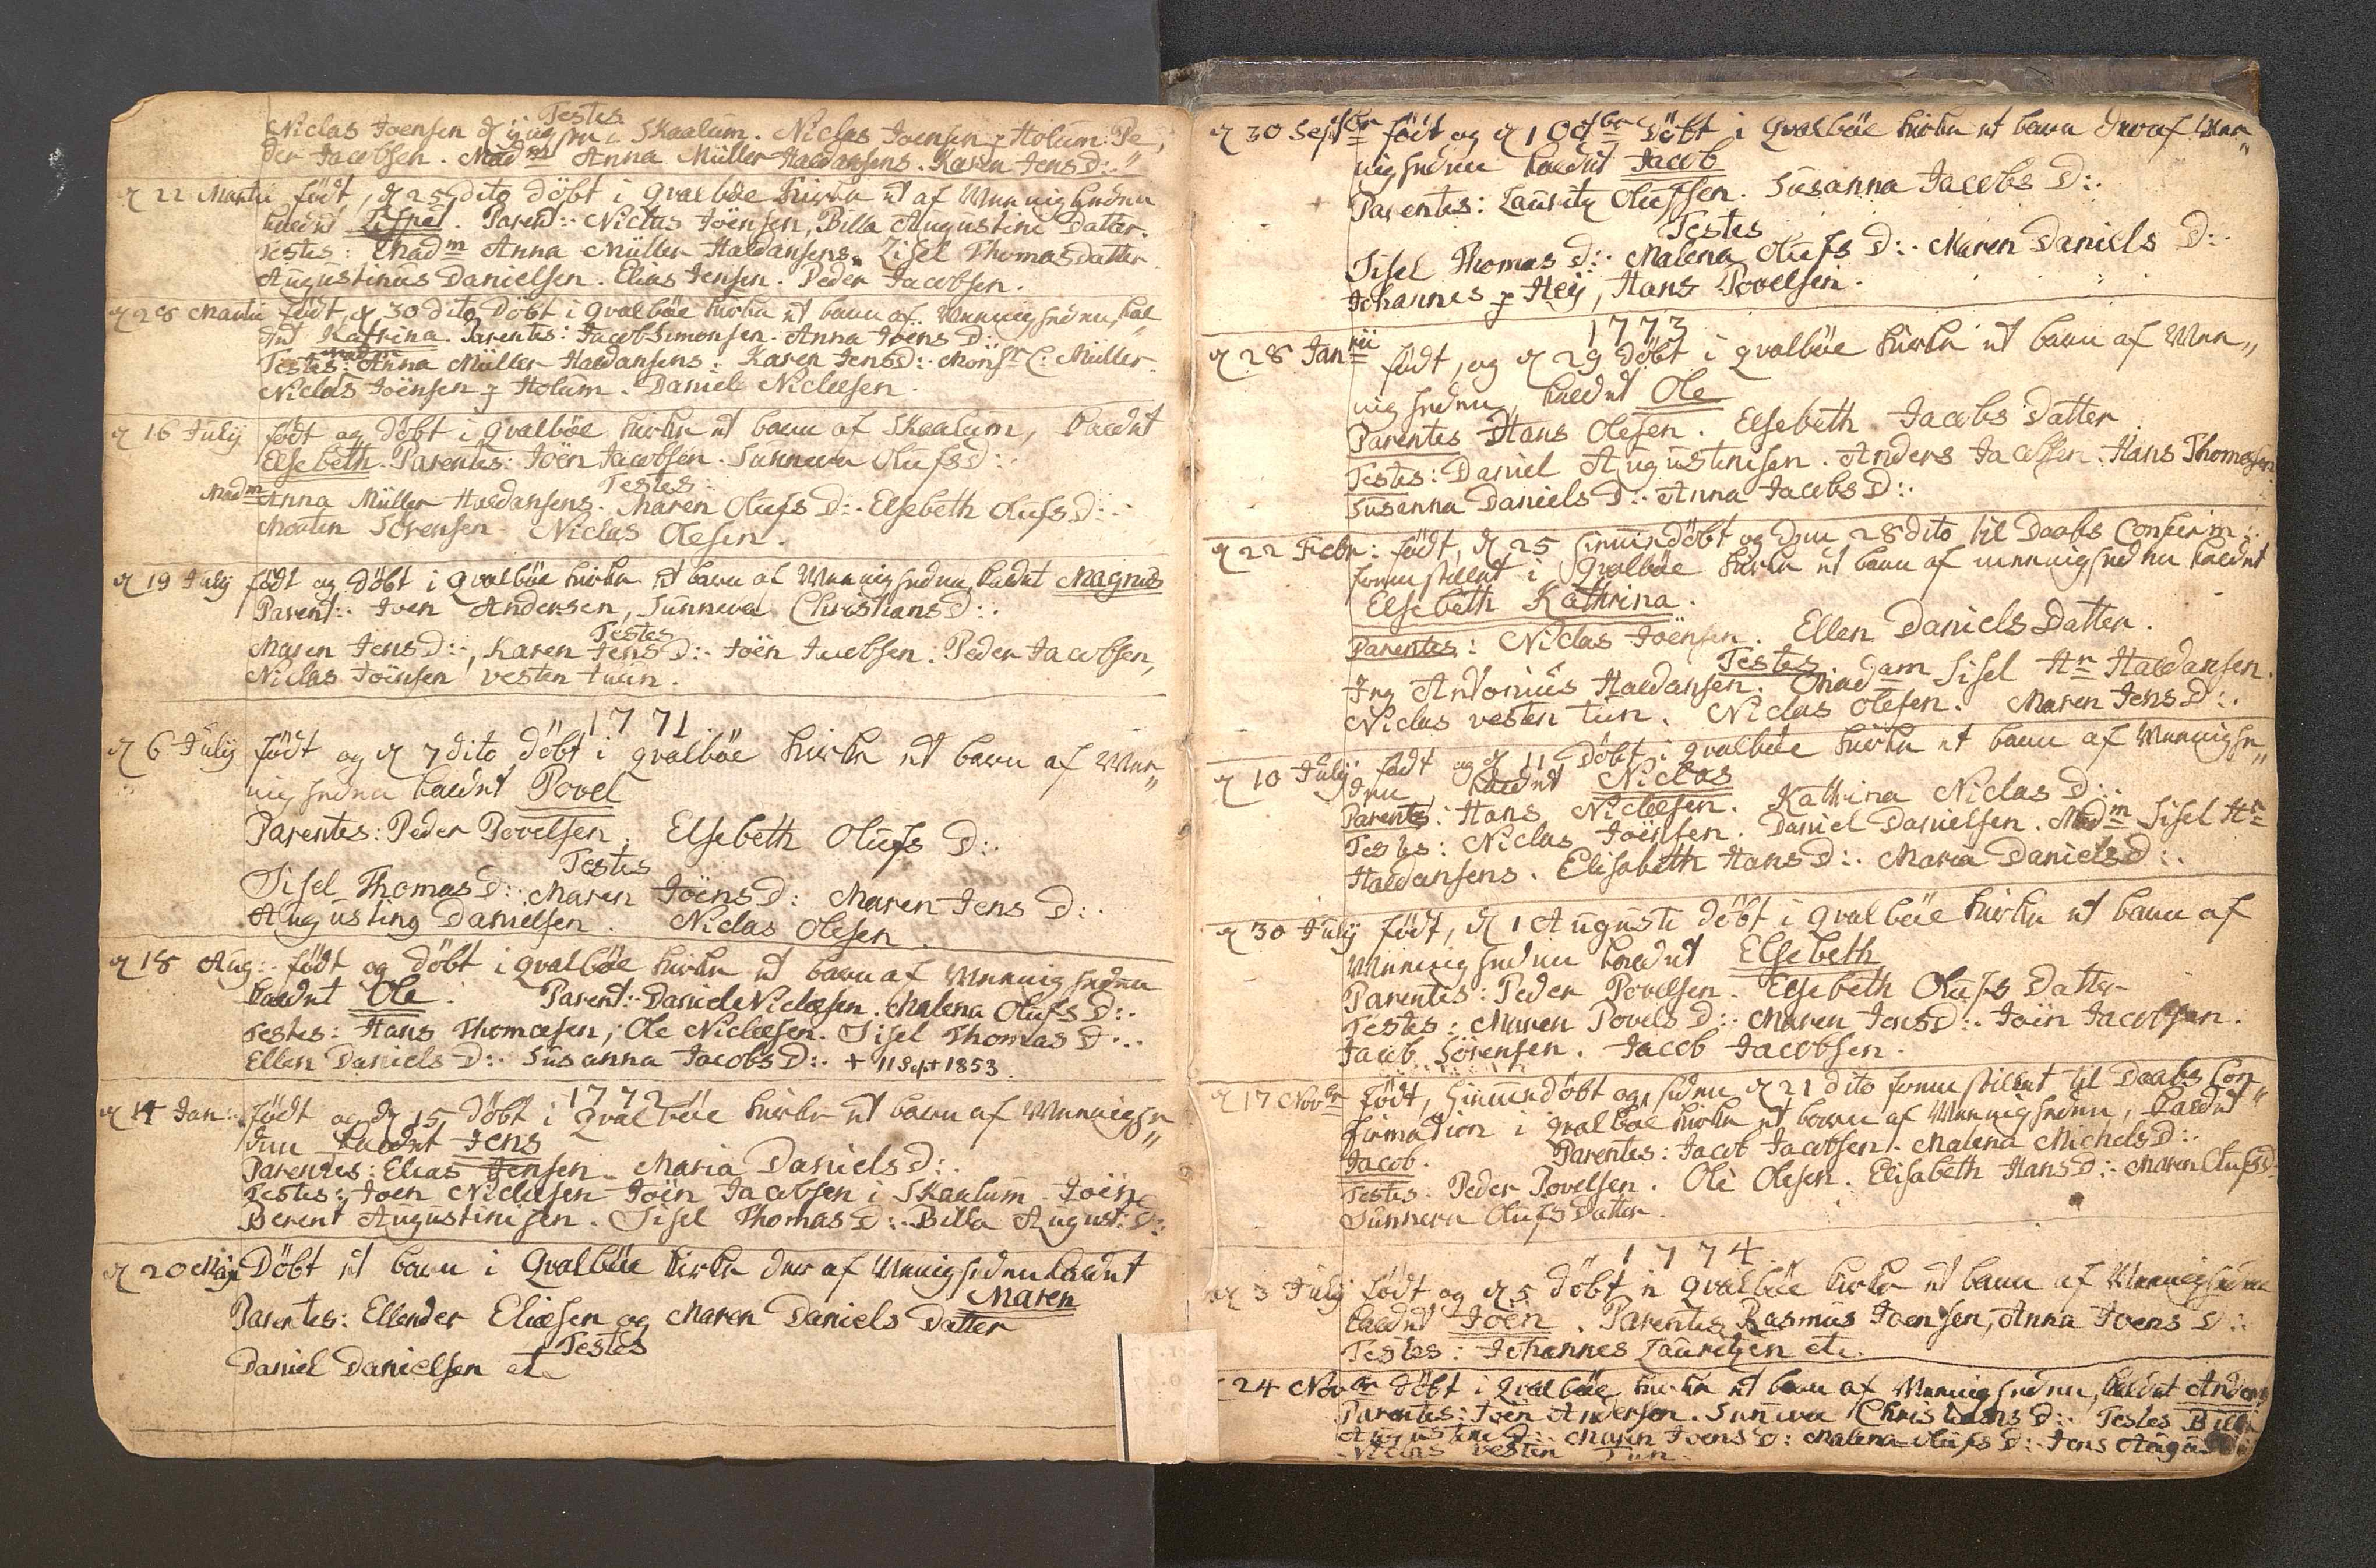 Testes
Niclas Joensen d: yng i Skaalum. Niclas Joensen p Holum. Pe„
der Jacobsen. Madm Anna Müller Haldansens. Karen Jens D:.
d 22 Martii født, d 25 dito döbt i Qvalböe Kirke et af Menigheden
kaldet Lispet. Parent:. Niclas Joënsen, Billa Augustini Datter.
Testes: Madm Anna Müller Haldansens. Zisel Thomasdatter
Augustinus Danielsen. Elias Jensen. Peder Jacobsen.
d 28 Martii født, d 30 dito Döbt i Qvalböe Kirke et barn af Menigheden, kal„
det Katrina. Parentes: Jacob Simonsen. Anna Joëns D:.
Testes: Madm Anna Müller Haldansens. Karen Jens D:. Monsr C: Müller.
Niclas Joënsen p Holum. Daniel Niclesen.
d 16 July født og döbt i Qvalböe Kirke et barn af Skaalum, kaldet
Elsebeth. Parentes: Joën Jacobsen. Sunneva Olufs D:.
Testes:
Madm Anna Müller Haldansens. Maren Olufs D:. Elsebeth Olufs D:.
Morten Sörensen Niclas Olesen.
d 19 July født og döbt i Qvalböe Kirke et barn af Menigheden kaldet Magnus
Parent:. Joen Andersen, Sunneva Christians D:.
Testes
Maren Jens D:., Karen Jens D:. Joën Jacobsen. Peder Jacobsen,
Niclas Joënsen vesten tuun.
1771.
d 6 July født og d 7 dito döbt i Qvalböe Kirke et barn af Men„
nigheden kaldet Povel
Parentes: Peder Povelsen. Elsebeth Olufs D:.
Testes
Sisel Thomas D:. Maren Joëns D: Maren Jens D:.
Augustinq Danielsen. Niclas Olesen.
d 18 Aug:. født og döbt i Qvalböe Kirke et barn af Menigheden
kaldet Ole. Parent:. Daniel Niclæsen. Malena Olufs D:.
Testes: Hans Thomæsen, Ole Niclæsen. Sisel Thomas D:.
Ellen Daniels D:. Susanna Jacobs D:. + 11 Sept 1853.
1772
d 14 Jan:. født og d 15 döbt i Qvalböe Kirke et barn af Menighe„
den kaldet Jens
Parentes: Elias Jensen. Maria Daniels D:.
Testes: Joen Niclæsen Joën Jacobsen i Skaalum. Joën
Berent Augustinisen. Sisel Thomas D:. Billa August: D:
d 20 Maji Döbt et barn i Qvalböe Kirke der af Menigheden kaldet
Maren
Parentes: Ellender Eliæsen og Maren Daniels Datter
Testes
Daniel Danielsen etc
d 30 Septbr født og d 1 Octbre Döbt i Qvalböe Kirke et barn der af Men„
nigheden kaldet Jacob
Parentes: Lauritz Olufsen. Susanna Jacobs D:.
Testes
Sisel Thomas D:. Malena Olufs D:. Maren Daniels D:.
Johannes p Heij, Hans Povelsen.
1773
d 28 Janrii født, og d 29 döbt i Qvalböe Kirke et barn af Men„
nigheden, kaldet Ole
Parentes Hans Olesen. Elsebeth Jacobs Datter
Testes: Daniel Augustinisen. Anders Jacobsen. Hans Thomesen
Susanna Daniels D:. Anna Jacobs D:.
d 22 Febr: født, d 25 hiemmedöbt og den 28 dito til Daabs Confirm:
fremstillet i Qvalböe Kirke et barn af menigheden kaldet
Elsebeth Kathrina.
Parentes: Niclas Joënsen. Ellen Daniels Datter.
Testes
Jng Antonius Haldansen. Madam Sisel Hr Haldansen.
Niclas vesten tün. Niclas Olesen. Maren Jens D:.
d 10 July født og d 11 Döbt i Qvalböe Kirke et barn af Menighe„
den, kaldet Niclas
Parentes: Hans Niclæsen. Kathrina Niclas D:.
Testes: Niclas Joënsen. Daniel Danielsen. Madm Sisel Hr
Haldansens. Elisabeth Hans D:. Maria Daniels D:.
d 30 July født, d 1 Augusti döbt i Qvalböe Kirke et barn af
Menigheden kaldet Elsebeth
Parentes: Peder Povelsen. Elsebeth Olufs Datter
Testes: Maren Povels D:. Maren Jens D:. Joën Jacobsen.
Jacob Sörensen. Jacob Jacobsen.
d 17 Novbr født, hiemmedöbt og siden d 21 dito fremstillet til Daabs Con„
firmation i Qvalböe Kirke et barn af Menigheden, kaldet
Jacob. Parentes: Jacob Jacobsen. Malena Michels D:.
Testes: Peder Povelsen. Ole Olesen. Elisabeth Hans D:. Maren Olufs D
Sunneva Olufs Datter.
1774
d 3 July født og d 5 döbt i Qvalböe Kirke et barn af Menigheden
kaldet Joën. Parentes Rasmus Joensen, Anna Joens D:.
Testes: Johannes Lauritzen etc.
24 Novbr döbt i Qvalböe Kirke et barn af Menigheden, kaldet Anders
Parentes: Joën Andersen. Sunneva Christians D:. Testes Billa
Augustini D:. Maren Joens D: Malena Olufs D: Jens Augus
Niclas vesten Tün.